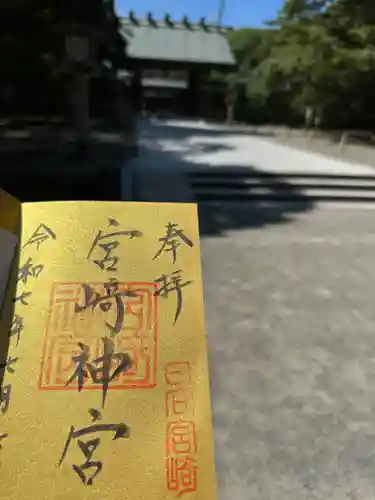 奉拝
日向宮崎
宮﨑神宮
令和七年七月